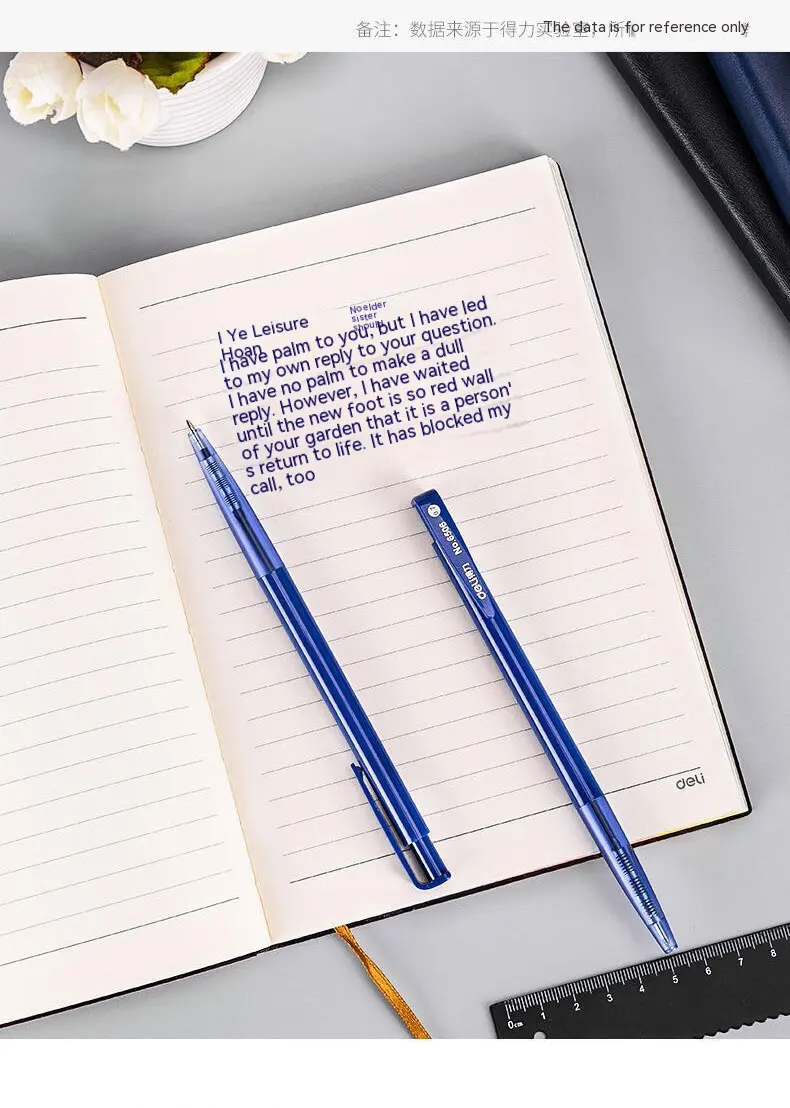 备注：数据来源于得力实验室，
The data is for reference only
I Ye Leisure
Hoan
No elder
sister
should
I have palm to you, but I have led
to my own reply to your question.
I have no palm to make a dull
reply. However, I have waited
until the new foot is so red wall
of your garden that it is a person'
s return to life. It has blocked my
call, too
No.6506
deli
deli
0cm 1 2 3 4 5 6 7 8